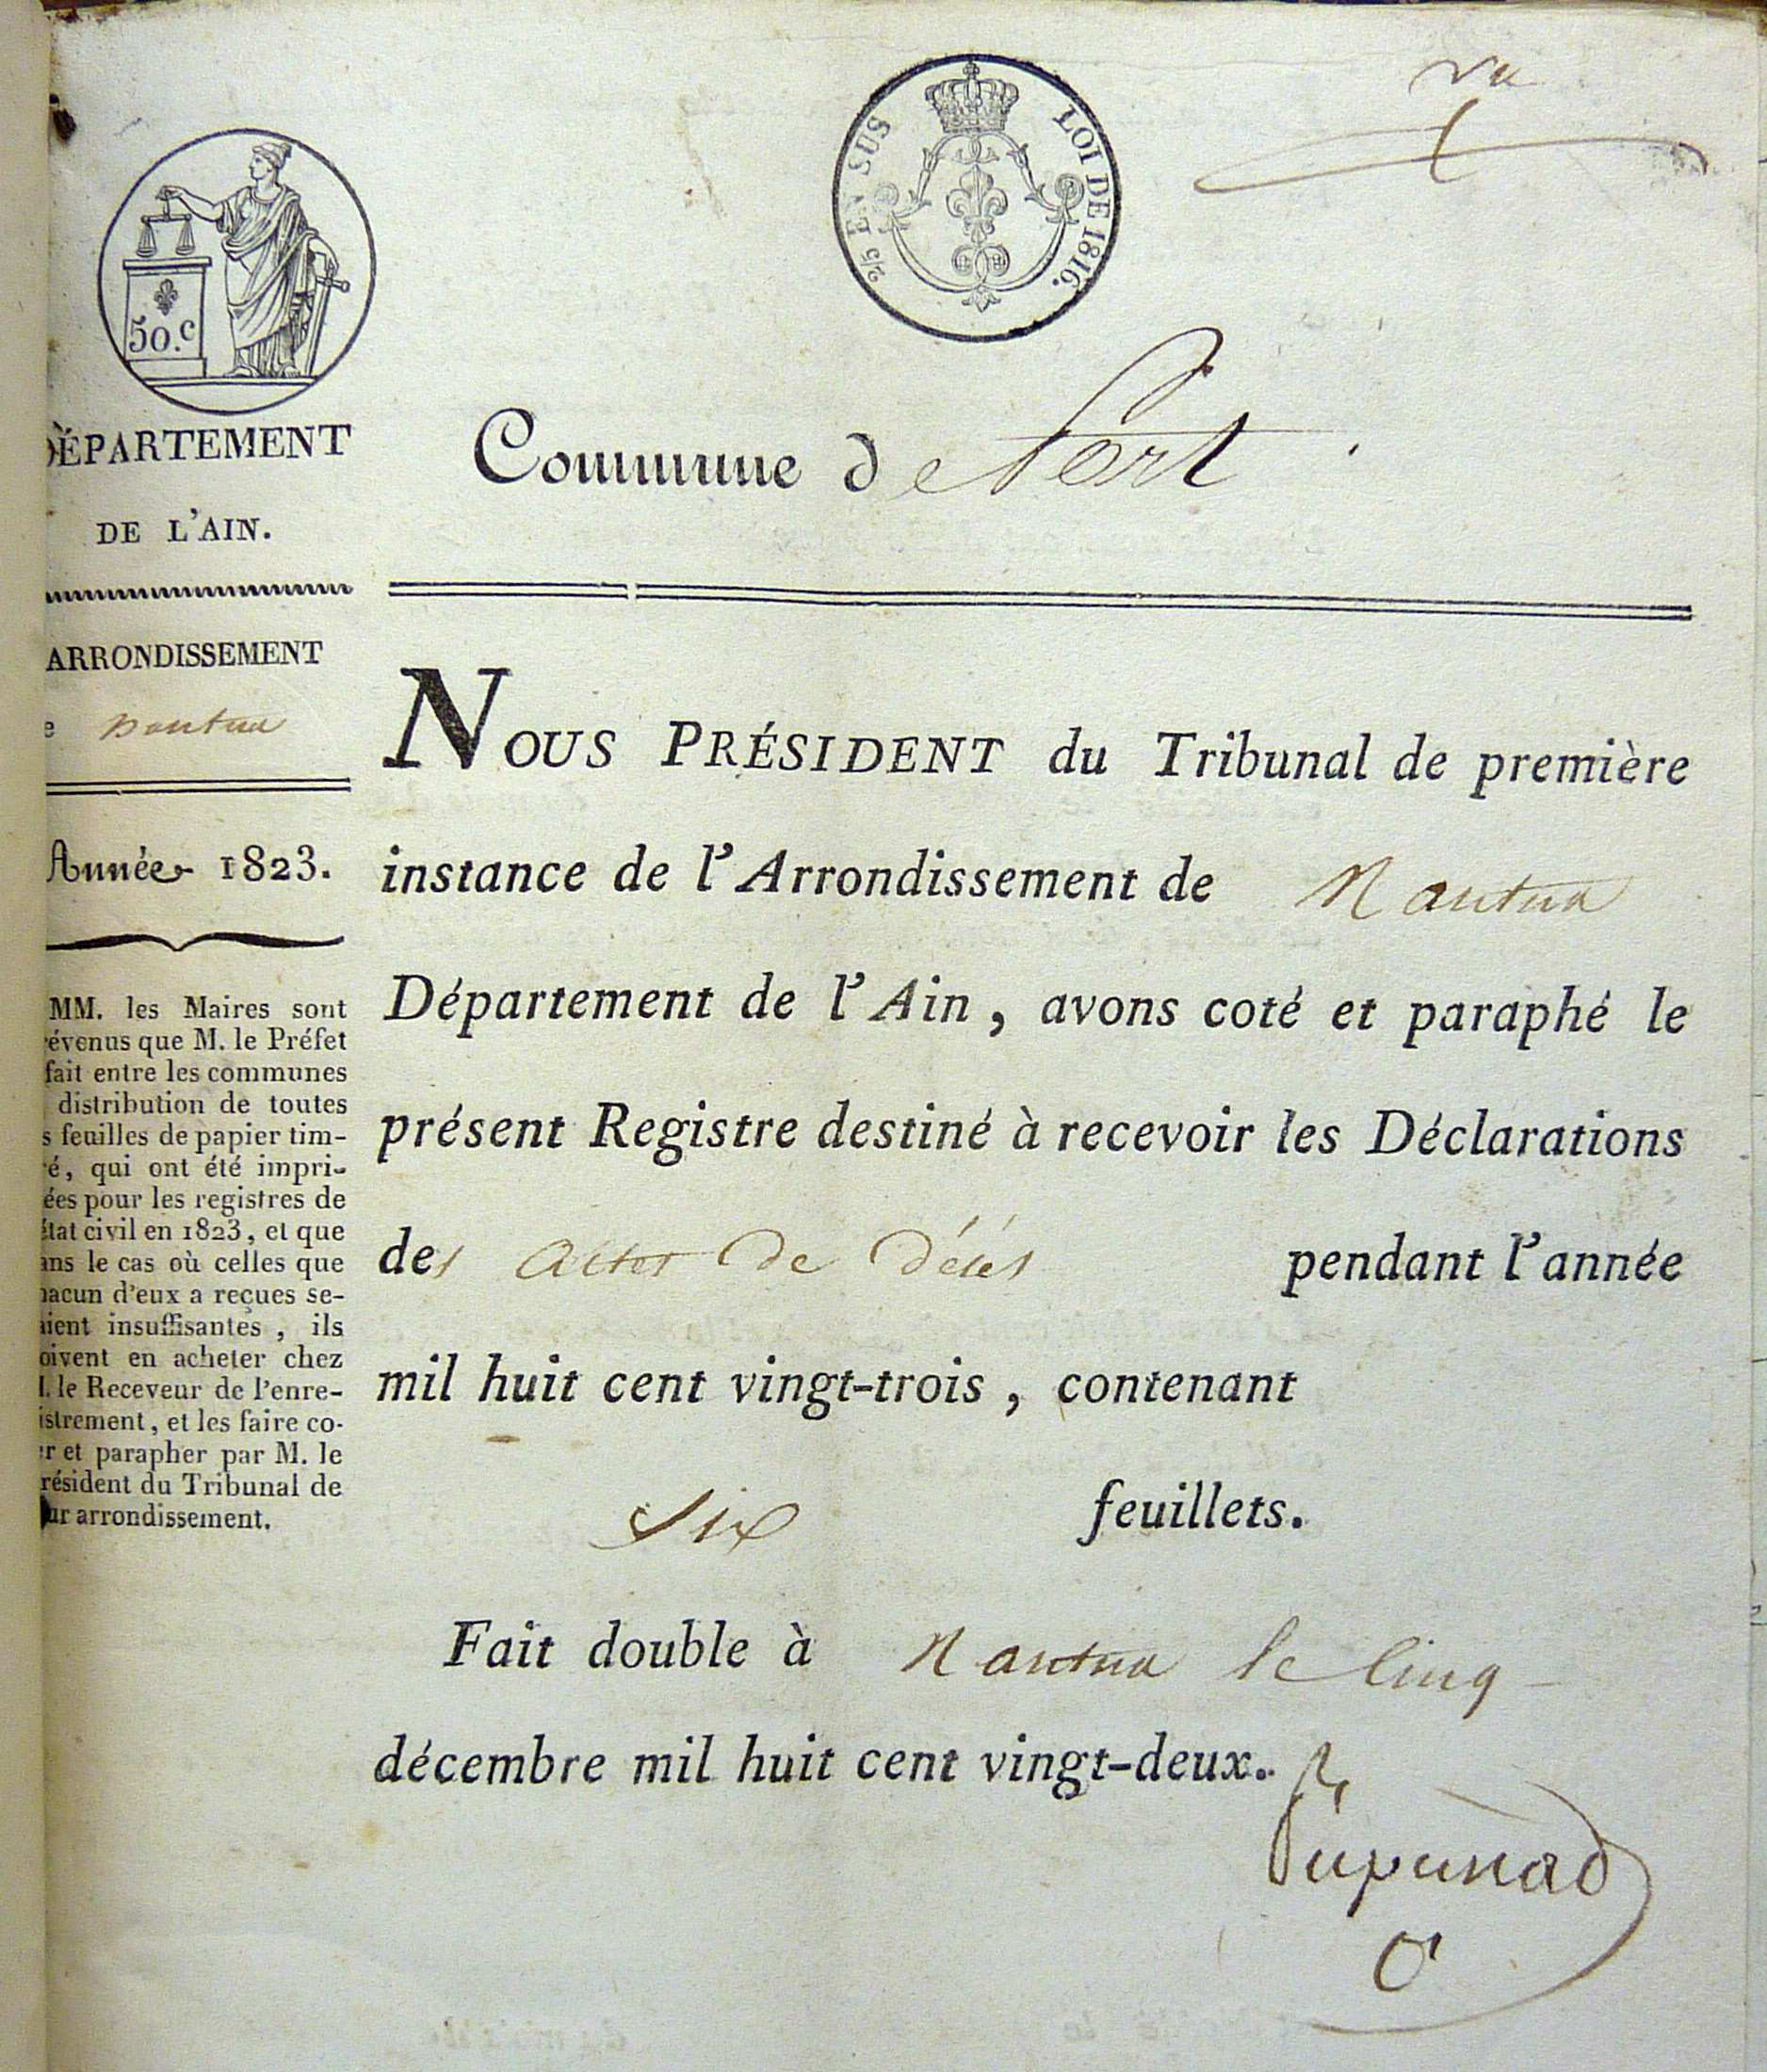 vu
2/5 EN SUS
LOI DE 1816.
50.c
DÉPARTEMENT
DE L'AIN.
ARRONDISSEMENT
e nantua
Année 1823.
MM. les Maires sont
révenus que M. le Préfet
fait entre les communes
distribution de toutes
s feuilles de papier tim-
ré, qui ont été impri-
ées pour les registres de
état civil en 1823, et que
ans le cas où celles que
hacun d'eux a reçues se-
aient insuffisantes, ils
oivent en acheter chez
M. le Receveur de l'enre-
istrement, et les faire co-
er et parapher par M. le
résident du Tribunal de
ur arrondissement.
Commune de Port
NOUS PRÉSIDENT du Tribunal de première
instance de l'Arrondissement de Nantua
Département de l'Ain, avons coté et paraphé le
présent Registre destiné à recevoir les Déclarations
des actes de décés pendant l'année
mil huit cent vingt-trois, contenant
six feuillets.
Fait double à Nantua le cinq
décembre mil huit cent vingt-deux.